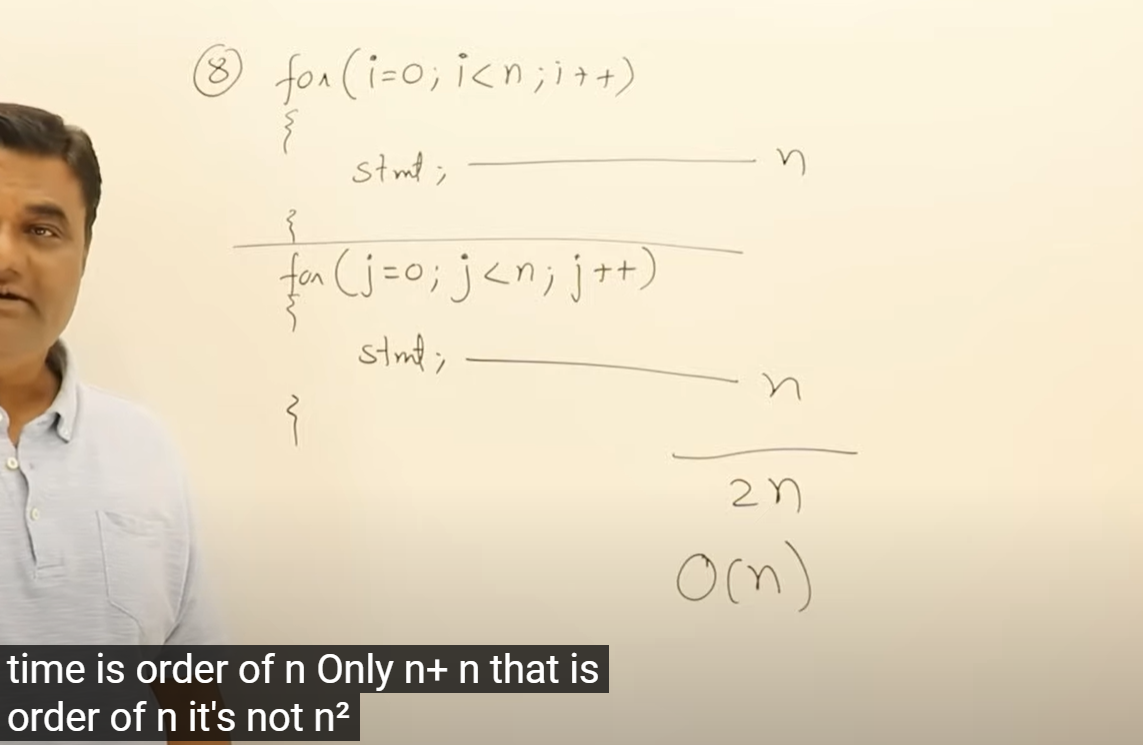 8 for(i=0; i<n; i++)
{
stmt; n
}
for(j=0; j<n; j++)
{
stmt; n
}
2n
O(n)
time is order of n Only n+ n that is
order of n it's not n²